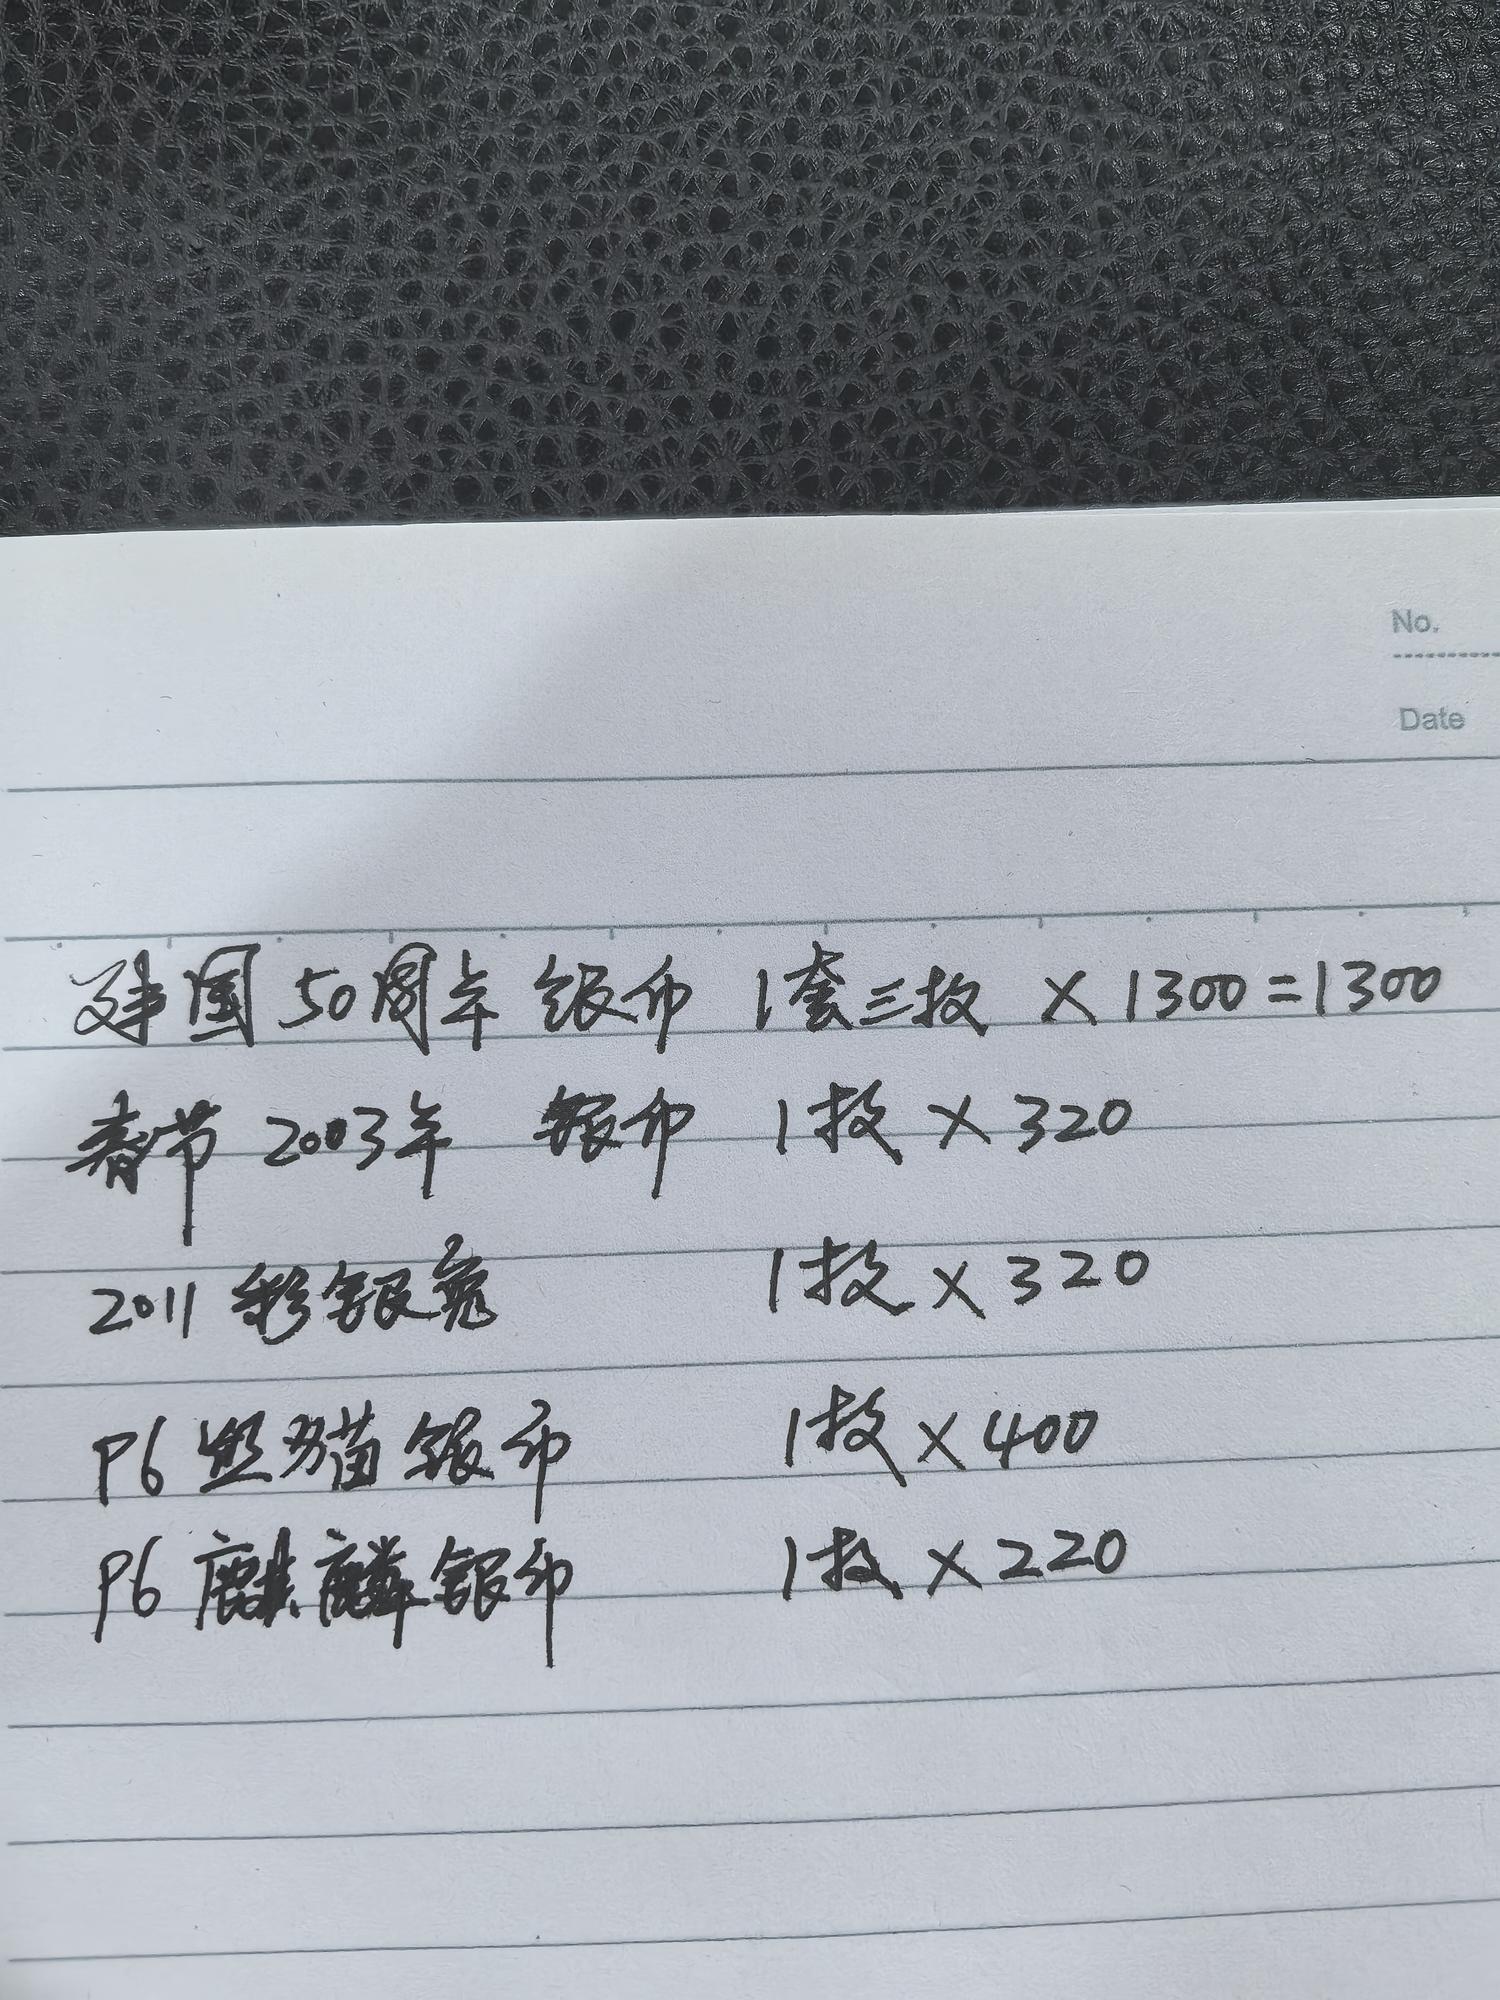 No.
Date
建国50周年 银币 1套三枚 × 1300=1300
春节 2003年 银币 1枚 × 320
2011 彩银兔 1枚 × 320
P6 熊猫银币 1枚 × 400
P6 麒麟银币 1枚 × 220